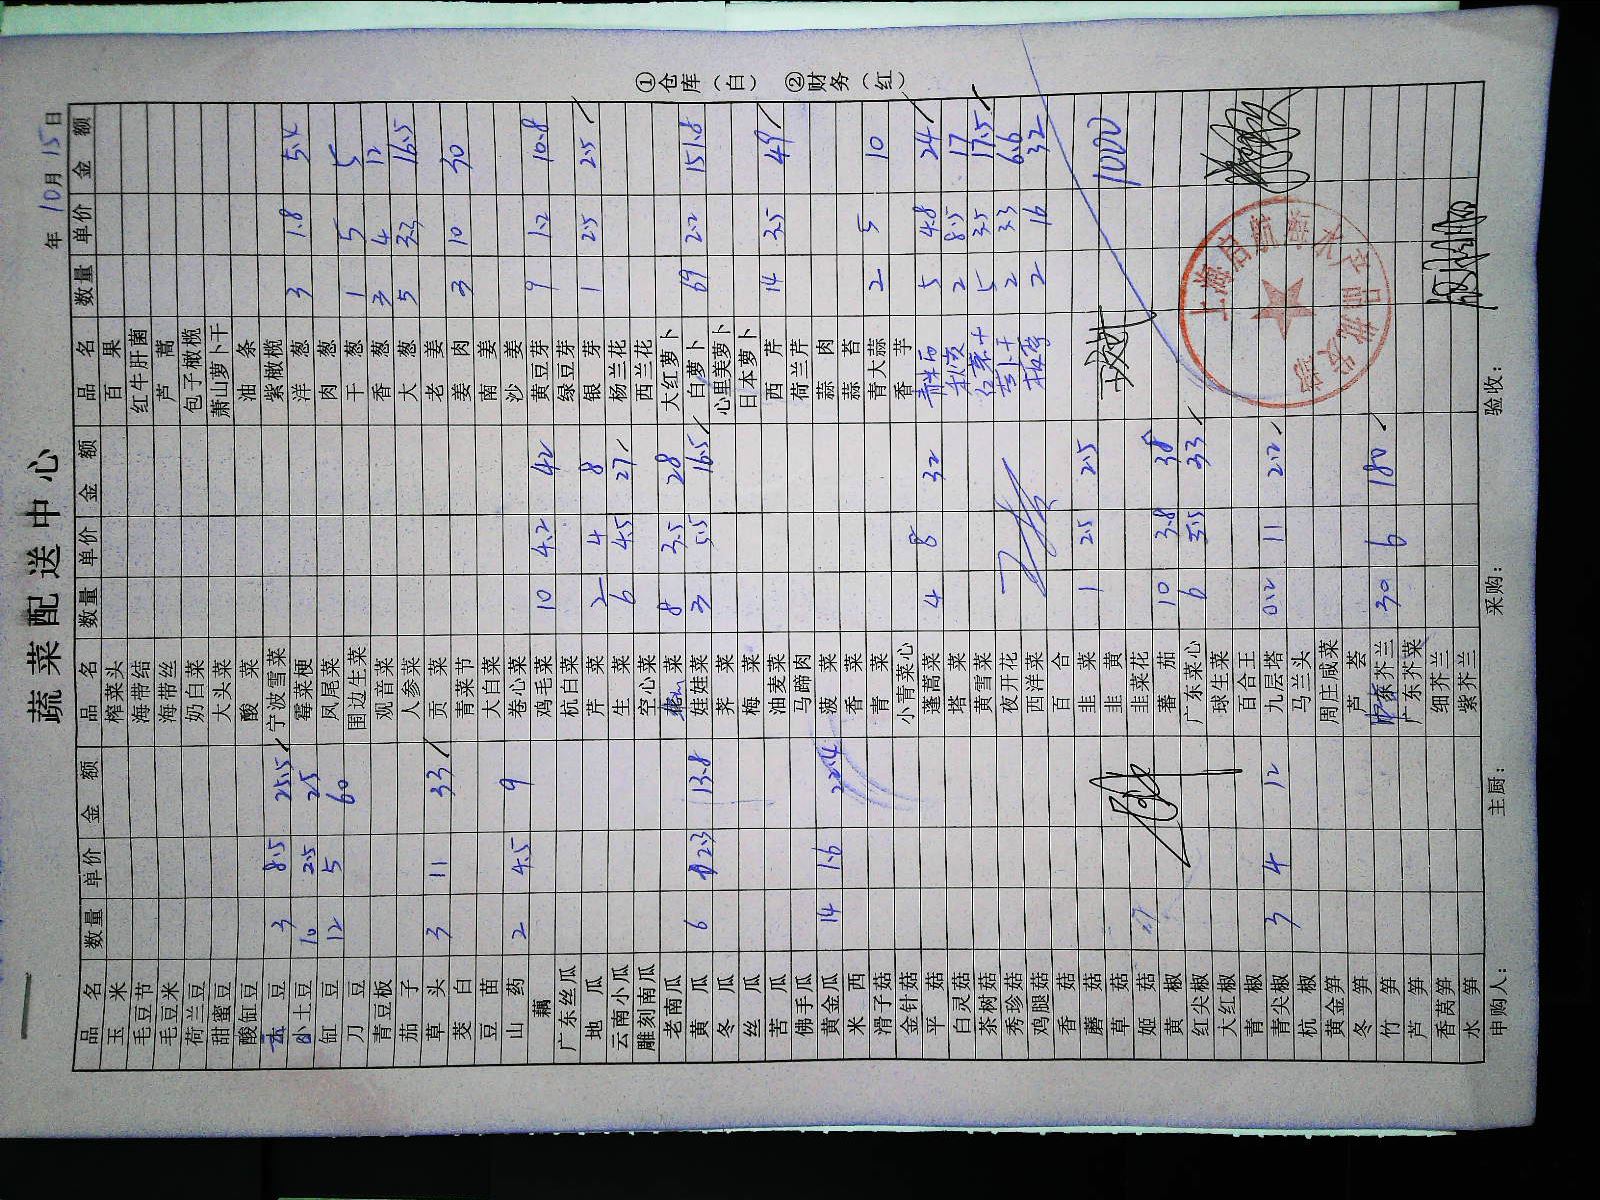 蔬菜配送中心
年10月15日
品名 数量 单价 金额 品名 数量 单价 金额 品名 数量 单价 金额
玉米 榨菜头 百果
毛豆节 海带结 红牛肝菌
毛豆米 海带丝 芦蒿
荷兰豆 奶白菜 包子橄榄
甜蜜豆 大头菜 萧山萝卜干
酸缸豆 酸菜 油条
豆 3 8.5 25.5 宁波雪菜 紫橄榄
小土豆 10 2.5 25 霉菜梗 洋葱 3 1.8 5.4
缸豆 12 5 60 凤尾菜 肉葱
刀豆 围边生菜 干葱 1 5 5
青豆板 观音菜 香葱 3 4 12
茄子 人参菜 大葱 5 3.3 16.5
草头 3 11 33 贡菜 老姜
茭白 青菜节 姜肉 3 10 30
豆苗 大白菜 南姜
山药 2 4.5 9 卷心菜 沙姜
藕 鸡毛菜 10 4.2 42 黄豆芽 9 1.2 10.8
广东丝瓜 杭白菜 绿豆芽
地瓜 芹菜 2 4 8 银芽 1 25 25
云南小瓜 生菜 6 4.5 27 杨兰花
雕刻南瓜 空心菜 西兰花
老南瓜 菜 8 3.5 28 大红萝卜
黄瓜 6 2.3 13.8 娃娃菜 3 5.5 16.5 白萝卜 69 2.2 151.8
冬瓜 荠菜 心里美萝卜
丝瓜 梅菜 日本萝卜
苦瓜 油麦菜 西芹 14 3.5 49
佛手瓜 马蹄肉 荷兰芹
黄金瓜 14 1.6 22.4 菠菜 蒜肉
米西 香菜 蒜苔
滑子菇 青菜 青大蒜 2 5 10
金针菇 小青菜心 香芋
平菇 蓬蒿菜 4 8 32 5 4.8 24
白灵菇 塔菜 2 8.5 17
茶树菇 黄雪菜 5 3.5 17.5
秀珍菇 夜开花 萝卜干 2 3.3 6.6
鸡腿菇 西洋菜 2 16 32
香菇 百合
蘑菇 韭菜 1 25 25
草菇 韭黄 1000
姬菇 韭菜花
黄椒 蕃茄 10 3.8 38
红尖椒 广东菜心 6 5.5 33
大红椒 球生菜
青椒 百合王
青尖椒 3 4 12 九层塔 0.2 11 2.2
杭椒 马兰头
黄金笋 周庄咸菜
冬笋 芦荟
竹笋 芥兰 30 6 180
芦笋 广东芥菜
香莴笋 细芥兰
水笋 紫芥兰
申购人： 主厨： 采购： 验收：
①仓库（白） ②财务（红）